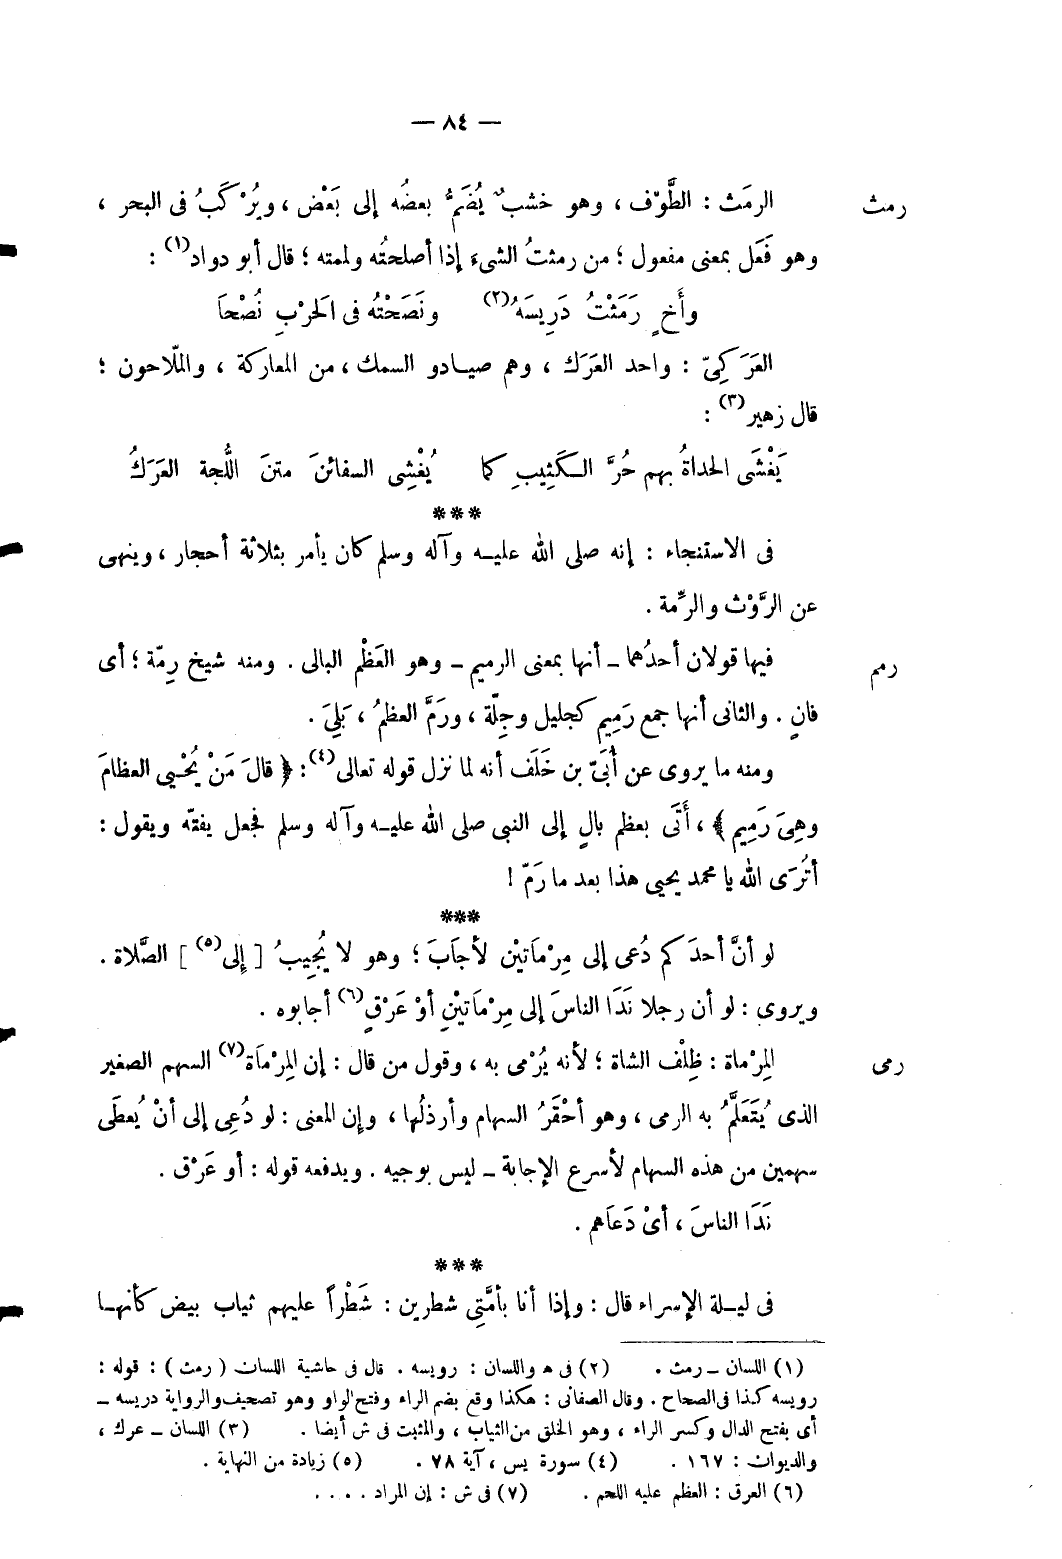 — ٨٤ —
رمث
الرمَث : الطَّوْف ، وهو خشبٌ يُضَمُّ بعضُه إلى بَعْض ، ويرُ ْكَبُ فى البحر ،
وهو فَعَل بمعنى مفعول ؛ من رمثتُ الشىء إذا أصلحتُه ولممته ؛ قال أبو دواد(١) :
وأَخٍ رَمَثْتُ دَرِيسَهُ(٢) ونَصَحْتُه فى الحَرْبِ نُصْحَا
العَرَكِىّ : واحد العَرَك ، وهم صيادو السمك ، من المعاركة ، والملّاحون ؛
قال زهير(٣) :
يَغْشَى الحداةُ بهم حُرَّ الكَثِيبِ كما يُغْشِى السفائنَ متنَ اللُّجة العَرَكُ
***
فى الاستنجاء : إنه صلى الله عليه وآله وسلم كان يأمر بثلاثة أحجار ، وينهى
عن الرَّوْث والرِّمة .
رمم
فيها قولان أحدُهما ــ أنها بمعنى الرميم ــ وهو العَظْم البالى . ومنه شيخ رِمّة ؛ أى
فانٍ . والثانى أنها جمع رَمِيم كجليل وجِلّة ، ورَمَّ العظمُ ، بَلِىَ .
ومنه ما يروى عن أُبَىّ بن خَلَف أنه لما نزل قوله تعالى(٤) : ﴿ قالَ مَنْ يُحْيى العظامَ
وهِىَ رَمِيم ﴾ ، أَتَى بعظم بالٍ إلى النبى صلى الله عليه وآله وسلم فجعل يفتّه ويقول :
أتُرَى الله يا محمد يحيى هذا بعد ما رَمّ !
***
لو أنَّ أحدَكم دُعى إلى مِرْمَاتيْن لأجَابَ ؛ وهو لا يُجِيبُ [ إلى(٥) ] الصَّلاة .
ويروى : لو أن رجلا نَدَا الناسَ إلى مِرْمَاتيْنِ أوْ عَرْقٍ(٦) أجابوه .
رمى
المِرْماة : ظِلْف الشاة ؛ لأنه يُرْمى به ، وقول من قال : إن المِرْمَاة(٧) السهم الصغير
الذى يُتَعَلَّمُ به الرمى ، وهو أحْقَرُ السهام وأرذلُها ، وإن المعنى : لو دُعِى إلى أنْ يُعطَى
سهمين من هذه السهام لأسرع الإجابة ــ ليس بوجيه . ويدفعه قوله : أو عَرْق .
نَدَا الناسَ ، أىْ دَعَاهم .
***
فى ليلة الإسراء قال : وإذا أنا بأمَّتِى شطرين : شَطْراً عليهم ثياب بيض كأنها
(١) اللسان ــ رمث . (٢) فى ه واللسان : رويسه . قال فى حاشية اللسان ( رمث ) : قوله :
رويسه كذا فى الصحاح . وقال الصغانى : هكذا وقع بضم الراء وفتح الواو وهو تصحيف والرواية دريسه ــ
أى بفتح الدال وكسر الراء ، وهو الخلق من الثياب ، والمثبت فى ش أيضا . (٣) اللسان ــ عرك ،
والديوان : ١٦٧ . (٤) سورة يس ، آية ٧٨ . (٥) زيادة من النهاية .
(٦) العرق : العظم عليه اللحم . (٧) فى ش : إن المراد . . . .